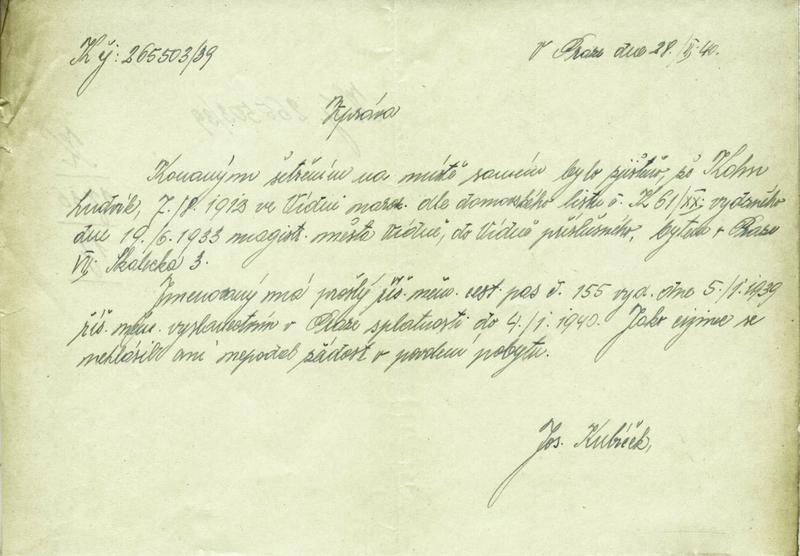 K čj: 265503/39
V Praze dne 28./II.40.
Zpráva
Konaným šetřením na místě samém bylo zjištěno, že Kohn
Ludvík, 7./8. 1913 ve Vídni naroz. dle domovského listu č. K 61/XX. vydaného
dne 19./6. 1933 magistr. města Vídně, do Vídně příslušného, bytem v Praze
VII. Skalecká 3.
Jmenovaný má prošlý říš. něm. cest. pas č. 155 vyd. dne 5./1. 1939
říš. něm. vyslanectvím v Praze splatnosti do 4./1. 1940. Jako cizinec se
nehlásil ani nepodal žádost o povolení pobytu.
Jos. Kubíček,